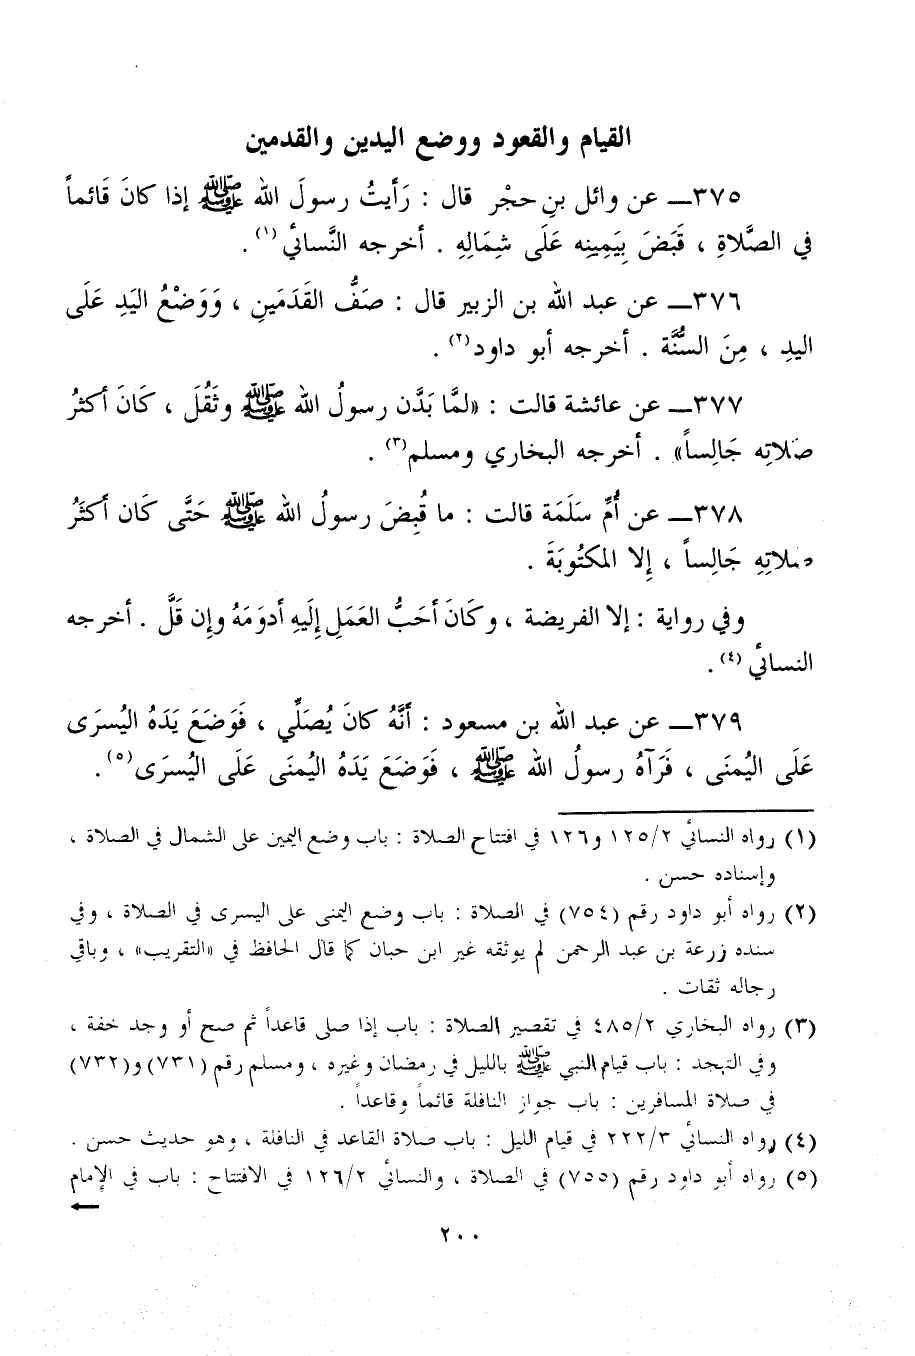 القيام والقعود ووضع اليدين والقدمين
٣٧٥ـ عن وائل بنِ حجْر قال : رَأيتُ رسولَ الله ﷺ إذا كانَ قَائماً
في الصَّلاةِ ، قَبَضَ بِيَمِينِه عَلَى شِمَالِهِ . أخرجه النَّسائيُّ (١) .
٣٧٦ـ عن عبد الله بن الزبير قال : صَفُّ القَدَمَينِ ، وَوَضْعُ اليَدِ عَلَى
اليدِ ، مِنَ السُّنَّة . أخرجه أبو داود(٢) .
٣٧٧ـ عن عائشة قالت : «لمَّا بَدَّن رسولُ الله ﷺ وثَقُلَ ، كَانَ أكثرُ
صَلاتِه جَالِساً» . أخرجه البخاري ومسلم(٣) .
٣٧٨ـ عن أُمِّ سَلَمَة قالت : ما قُبِضَ رسولُ الله ﷺ حَتَّى كَان أكثَرُ
صلاتِهِ جَالِساً ، إِلا المكتُوبَةَ .
وفي رواية : إلا الفريضة ، وكَانَ أحَبُّ العَمَلِ إلَيهِ أدوَمَهُ وإن قَلَّ . أخرجه
النسائيُّ (٤) .
٣٧٩ـ عن عبد الله بن مسعود : أنَّهُ كانَ يُصَلِّي ، فَوَضَعَ يَدَهُ اليُسرَى
عَلَى اليُمنَى ، فَرَآهُ رسولُ الله ﷺ ، فَوَضَعَ يَدَهُ اليُمنَى عَلَى اليُسرَى(٥) .
(١) رواه النسائي ١٢٥/٢ و١٢٦ في افتتاح الصلاة : باب وضع اليمين على الشمال في الصلاة ،
وإسناده حسن .
(٢) رواه أبو داود رقم (٧٥٤) في الصلاة : باب وضع اليمنى على اليسرى في الصلاة ، وفي
سنده زرعة بن عبد الرحمن لم يوثقه غير ابن حبان كما قال الحافظ في «التقريب» ، وباقي
رجاله ثقات .
(٣) رواه البخاري ٤٨٥/٢ في تقصير الصلاة : باب إذا صلى قاعداً ثم صح أو وجد خفة ،
وفي التهجد : باب قيام النبي ﷺ بالليل في رمضان وغيره ، ومسلم رقم (٧٣١) و(٧٣٢)
في صلاة المسافرين : باب جواز النافلة قائماً وقاعداً .
(٤) رواه النسائي ٢٢٢/٣ في قيام الليل : باب صلاة القاعد في النافلة ، وهو حديث حسن .
(٥) رواه أبو داود رقم (٧٥٥) في الصلاة ، والنسائي ١٢٦/٢ في الافتتاح : باب في الإمام
٢٠٠